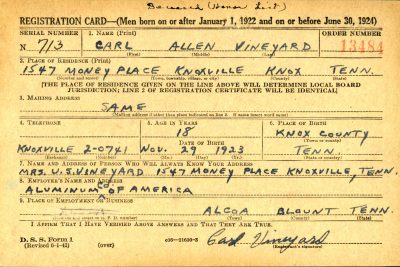 Deceased (Honor List)
REGISTRATION CARD—(Men born on or after January 1, 1922 and on or before June 30, 1924)
SERIAL NUMBER 1. NAME (Print) ORDER NUMBER
N 713 CARL ALLEN VINEYARD 13484
(First) (Middle) (Last)
2. PLACE OF RESIDENCE (Print)
1547 MONEY PLACE KNOXVILLE KNOX TENN.
[THE PLACE OF RESIDENCE GIVEN ON THE LINE ABOVE WILL DETERMINE LOCAL BOARD
JURISDICTION; LINE 2 OF REGISTRATION CERTIFICATE WILL BE IDENTICAL]
3. MAILING ADDRESS
SAME
[Mailing address if other than place indicated on line 2. If same insert word same]
4. TELEPHONE 5. AGE IN YEARS 6. PLACE OF BIRTH
18 KNOX COUNTY
DATE OF BIRTH (Town or county)
KNOXVILLE 2-0741 NOV. 29 1923 TENN.
(Exchange) (Number) (Mo.) (Day) (Yr.) (State or country)
7. NAME AND ADDRESS OF PERSON WHO WILL ALWAYS KNOW YOUR ADDRESS
MRS. U.S. VINEYARD 1547 MONEY PLACE KNOXVILLE, TENN.
8. EMPLOYER'S NAME AND ADDRESS
ALUMINUM CO. OF AMERICA
9. PLACE OF EMPLOYMENT OR BUSINESS
ALCOA BLOUNT TENN.
(Town) (County) (State)
I AFFIRM THAT I HAVE VERIFIED ABOVE ANSWERS AND THAT THEY ARE TRUE.
D. S. S. Form 1
(Revised 6-1-42) (over) Carl Vineyard
(Registrant's signature)